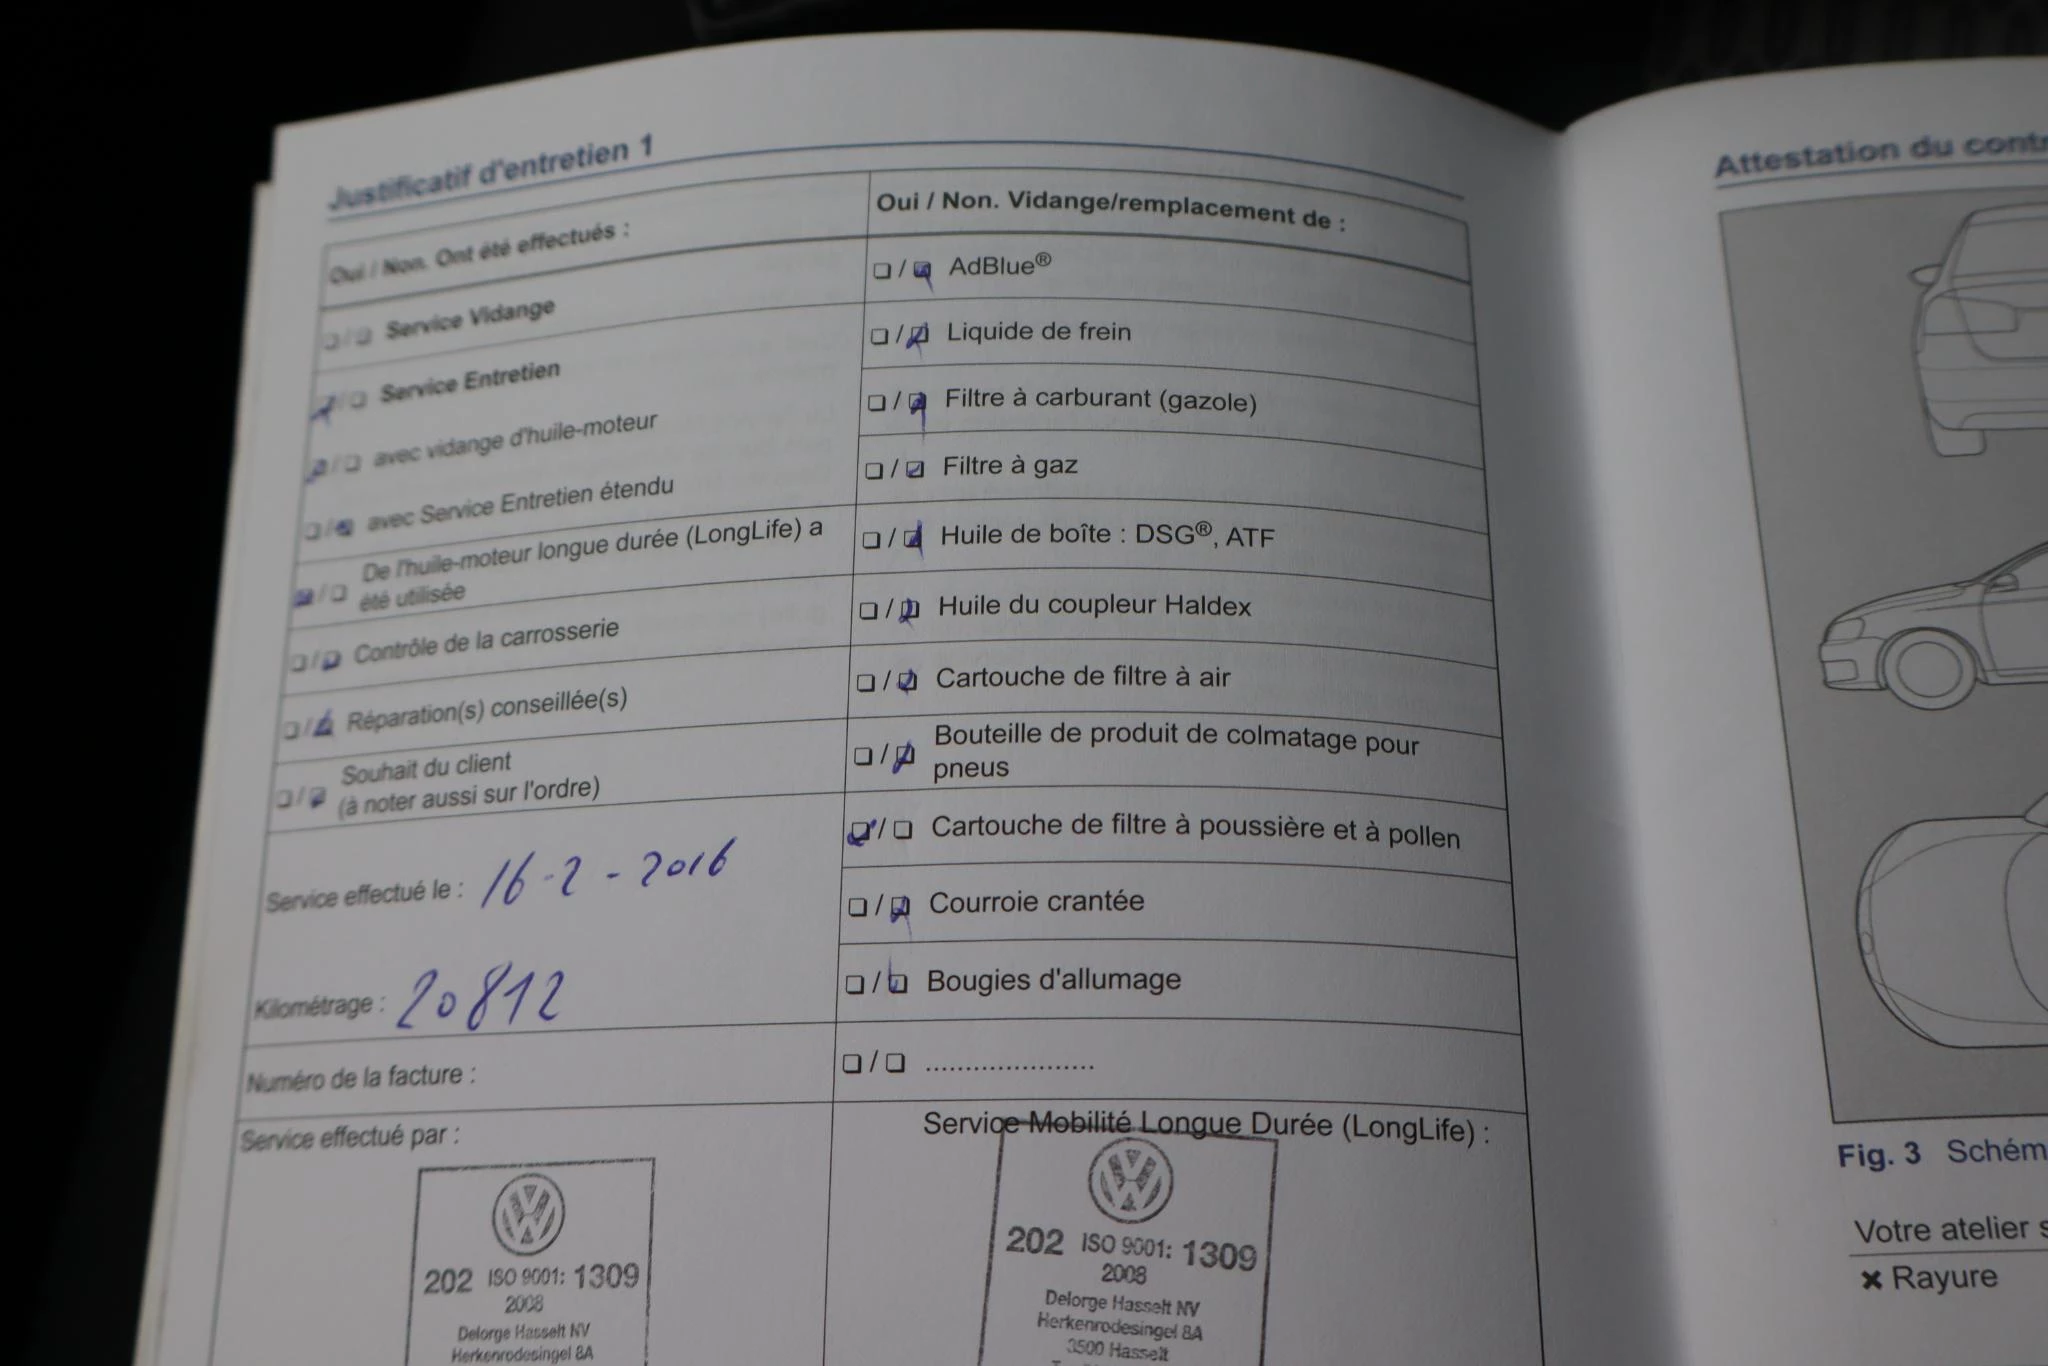 Justificatif d'entretien 1
Oui / Non. Ont été effectués :
❑ / ❑ Service Vidange
❑ / ❑ Service Entretien
❑ / ❑ avec vidange d'huile-moteur
❑ / ❑ avec Service Entretien étendu
❑ / ❑ De l'huile-moteur longue durée (LongLife) a
été utilisée
❑ / ❑ Contrôle de la carrosserie
❑ / ❑ Réparation(s) conseillée(s)
❑ / ❑ Souhait du client
(à noter aussi sur l'ordre)
Service effectué le : 16-2-2016
Kilométrage : 20812
Numéro de la facture :
Service effectué par :
202 ISO 9001: 1309
2008
Delorge Hasselt NV
Herkenrodesingel 8A
Oui / Non. Vidange/remplacement de :
❑ / ❑ AdBlue®
❑ / ❑ Liquide de frein
❑ / ❑ Filtre à carburant (gazole)
❑ / ❑ Filtre à gaz
❑ / ❑ Huile de boîte : DSG®, ATF
❑ / ❑ Huile du coupleur Haldex
❑ / ❑ Cartouche de filtre à air
❑ / ❑ Bouteille de produit de colmatage pour
pneus
❑ / ❑ Cartouche de filtre à poussière et à pollen
❑ / ❑ Courroie crantée
❑ / ❑ Bougies d'allumage
❑ / ❑ .....................
Service Mobilité Longue Durée (LongLife) :
202 ISO 9001: 1309
2008
Delorge Hasselt NV
Herkenrodesingel 8A
3500 Hasselt
Attestation du
Fig. 3
Votre atelier
✖ Rayure